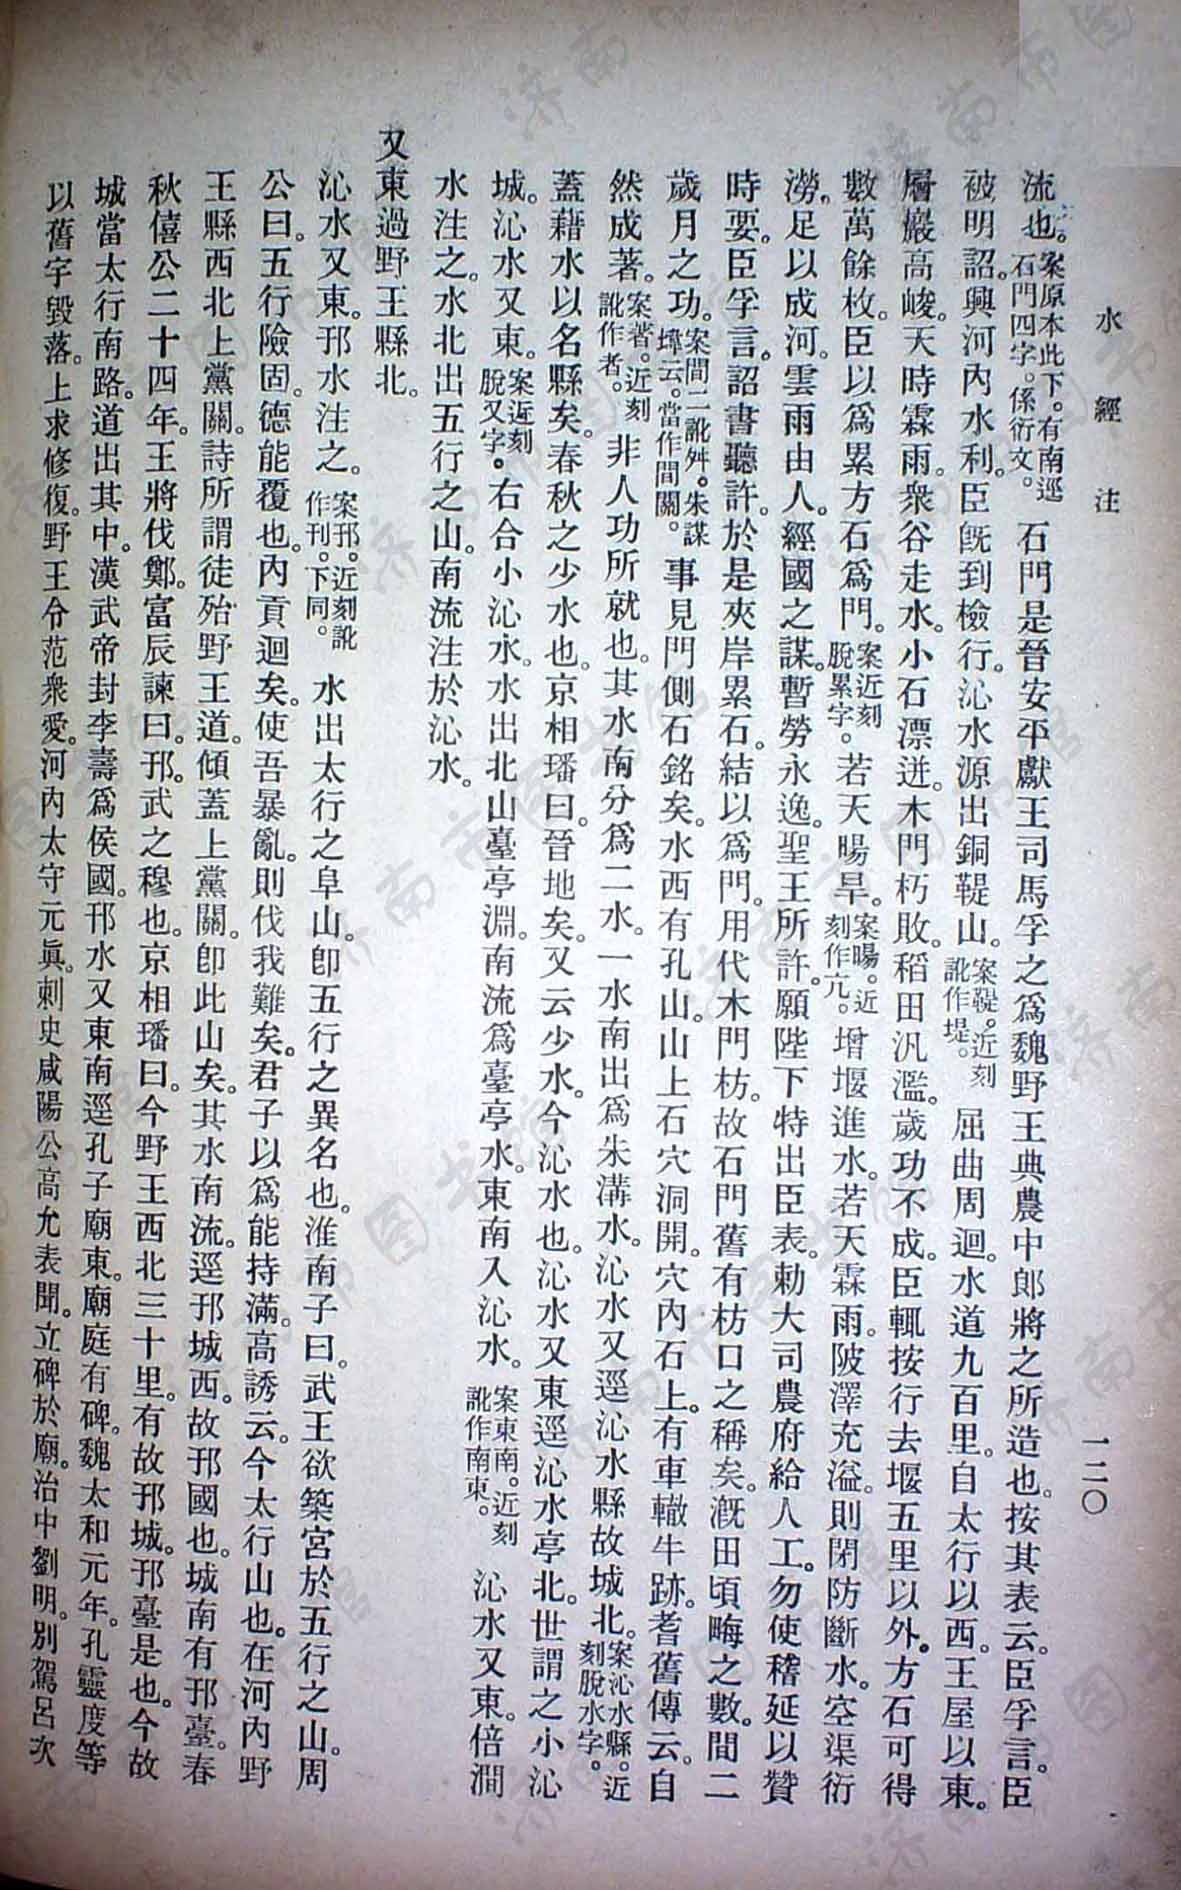 水經注
一二〇
流也。案原本此下。有南逕石門四字。係衍文。石門是晉安平獻王司馬孚之爲魏野王典農中郎將之所造也。按其表云。臣孚言。臣
被明詔。興河內水利。臣旣到檢行。沁水源出銅鞮山。案鞮。近刻訛作堤。屈曲周迴。水道九百里。自太行以西。王屋以東。
層巖高峻。天時霖雨。衆谷走水。小石漂迸。木門朽敗。稻田汎濫。歲功不成。臣輒按行去堰五里以外。方石可得
數萬餘枚。臣以爲累方石爲門。案近刻脫累字。若天暘旱。案暘。近刻作亢。增堰進水。若天霖雨。陂澤充溢。則閉防斷水。空渠衍
澇。足以成河。雲雨由人。經國之謀。暫勞永逸。聖王所許。願陛下特出臣表。勅大司農府給人工。勿使稽延以贊
時要。臣孚言。詔書聽許。於是夾岸累石。結以爲門。用代木門枋。故石門舊有枋口之稱矣。漑田頃畮之數。間二
歲月之功。案間二訛舛。朱謀㙔云。當作間關。事見門側石銘矣。水西有孔山。山上石穴洞開。穴內石上。有車轍牛跡。耆舊傳云。自
然成著。案著。近刻訛作者。非人功所就也。其水南分爲二水。一水南出爲朱溝水。沁水又逕沁水縣故城北。案沁水縣。近刻脫水字。
蓋藉水以名縣矣。春秋之少水也。京相璠曰。晉地矣。又云少水。今沁水也。沁水又東逕沁水亭北。世謂之小沁
城。沁水又東。案近刻脫又字。右合小沁水。水出北山臺亭淵。南流爲臺亭水。東南入沁水。案東南。近刻訛作南東。沁水又東。倍澗
水注之。水北出五行之山。南流注於沁水。
又東過野王縣北。
沁水又東。邘水注之。案邘。近刻訛作刊。下同。水出太行之阜山。卽五行之異名也。淮南子曰。武王欲築宮於五行之山。周
公曰。五行險固。德能覆也。內貢迴矣。使吾暴亂。則伐我難矣。君子以爲能持滿。高誘云。今太行山也。在河內野
王縣西北上黨關。詩所謂徒殆野王道。傾蓋上黨關。卽此山矣。其水南流。逕邘城西。故邘國也。城南有邘臺。春
秋僖公二十四年。王將伐鄭。富辰諫曰。邘。武之穆也。京相璠曰。今野王西北三十里。有故邘城。邘臺是也。今故
城當太行南路。道出其中。漢武帝封李壽爲侯國。邘水又東南逕孔子廟東。廟庭有碑。魏太和元年。孔靈度等
以舊宇毀落。上求修復。野王令范衆愛。河內太守元眞。刺史咸陽公高允表聞。立碑於廟。治中劉明。別駕呂次